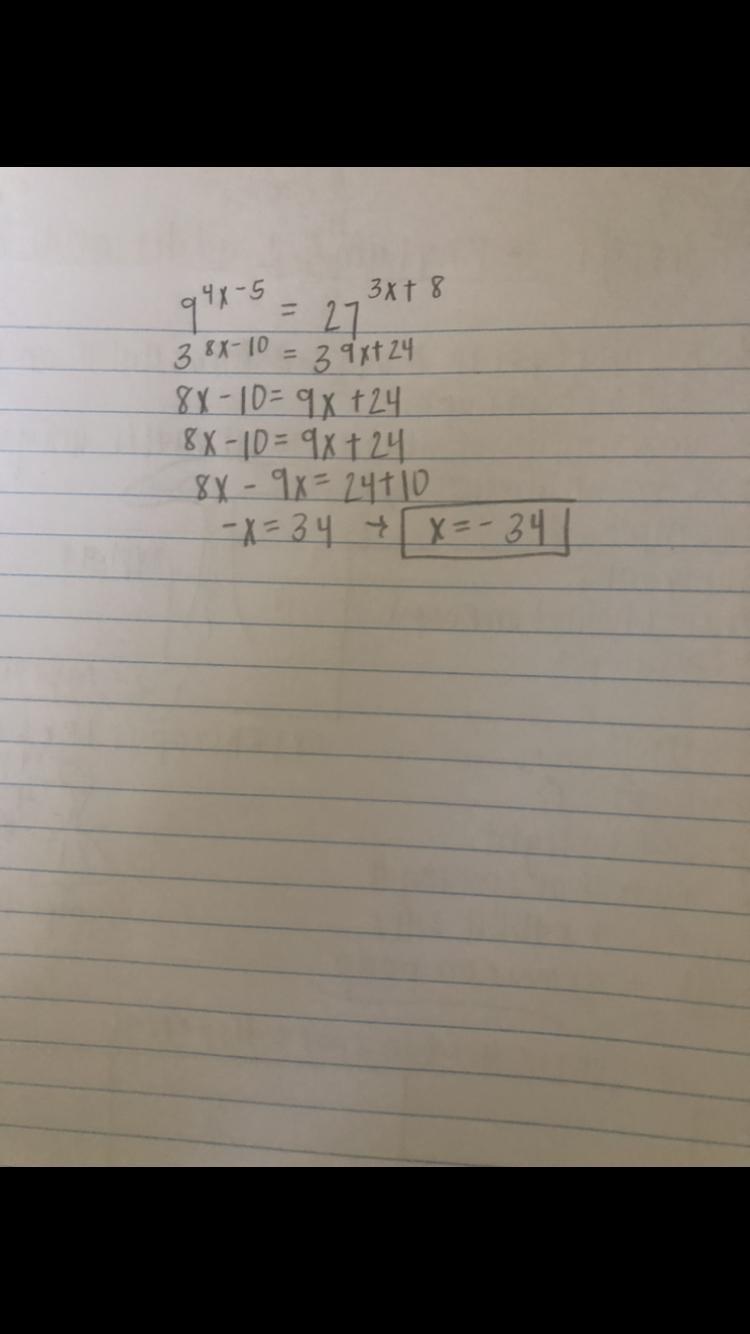 9^{4x-5} = 27^{3x+8}
3^{8x-10} = 3^{9x+24}
8x-10=9x+24
8x-10=9x+24
8x-9x=24+10
-x=34 → x=-34